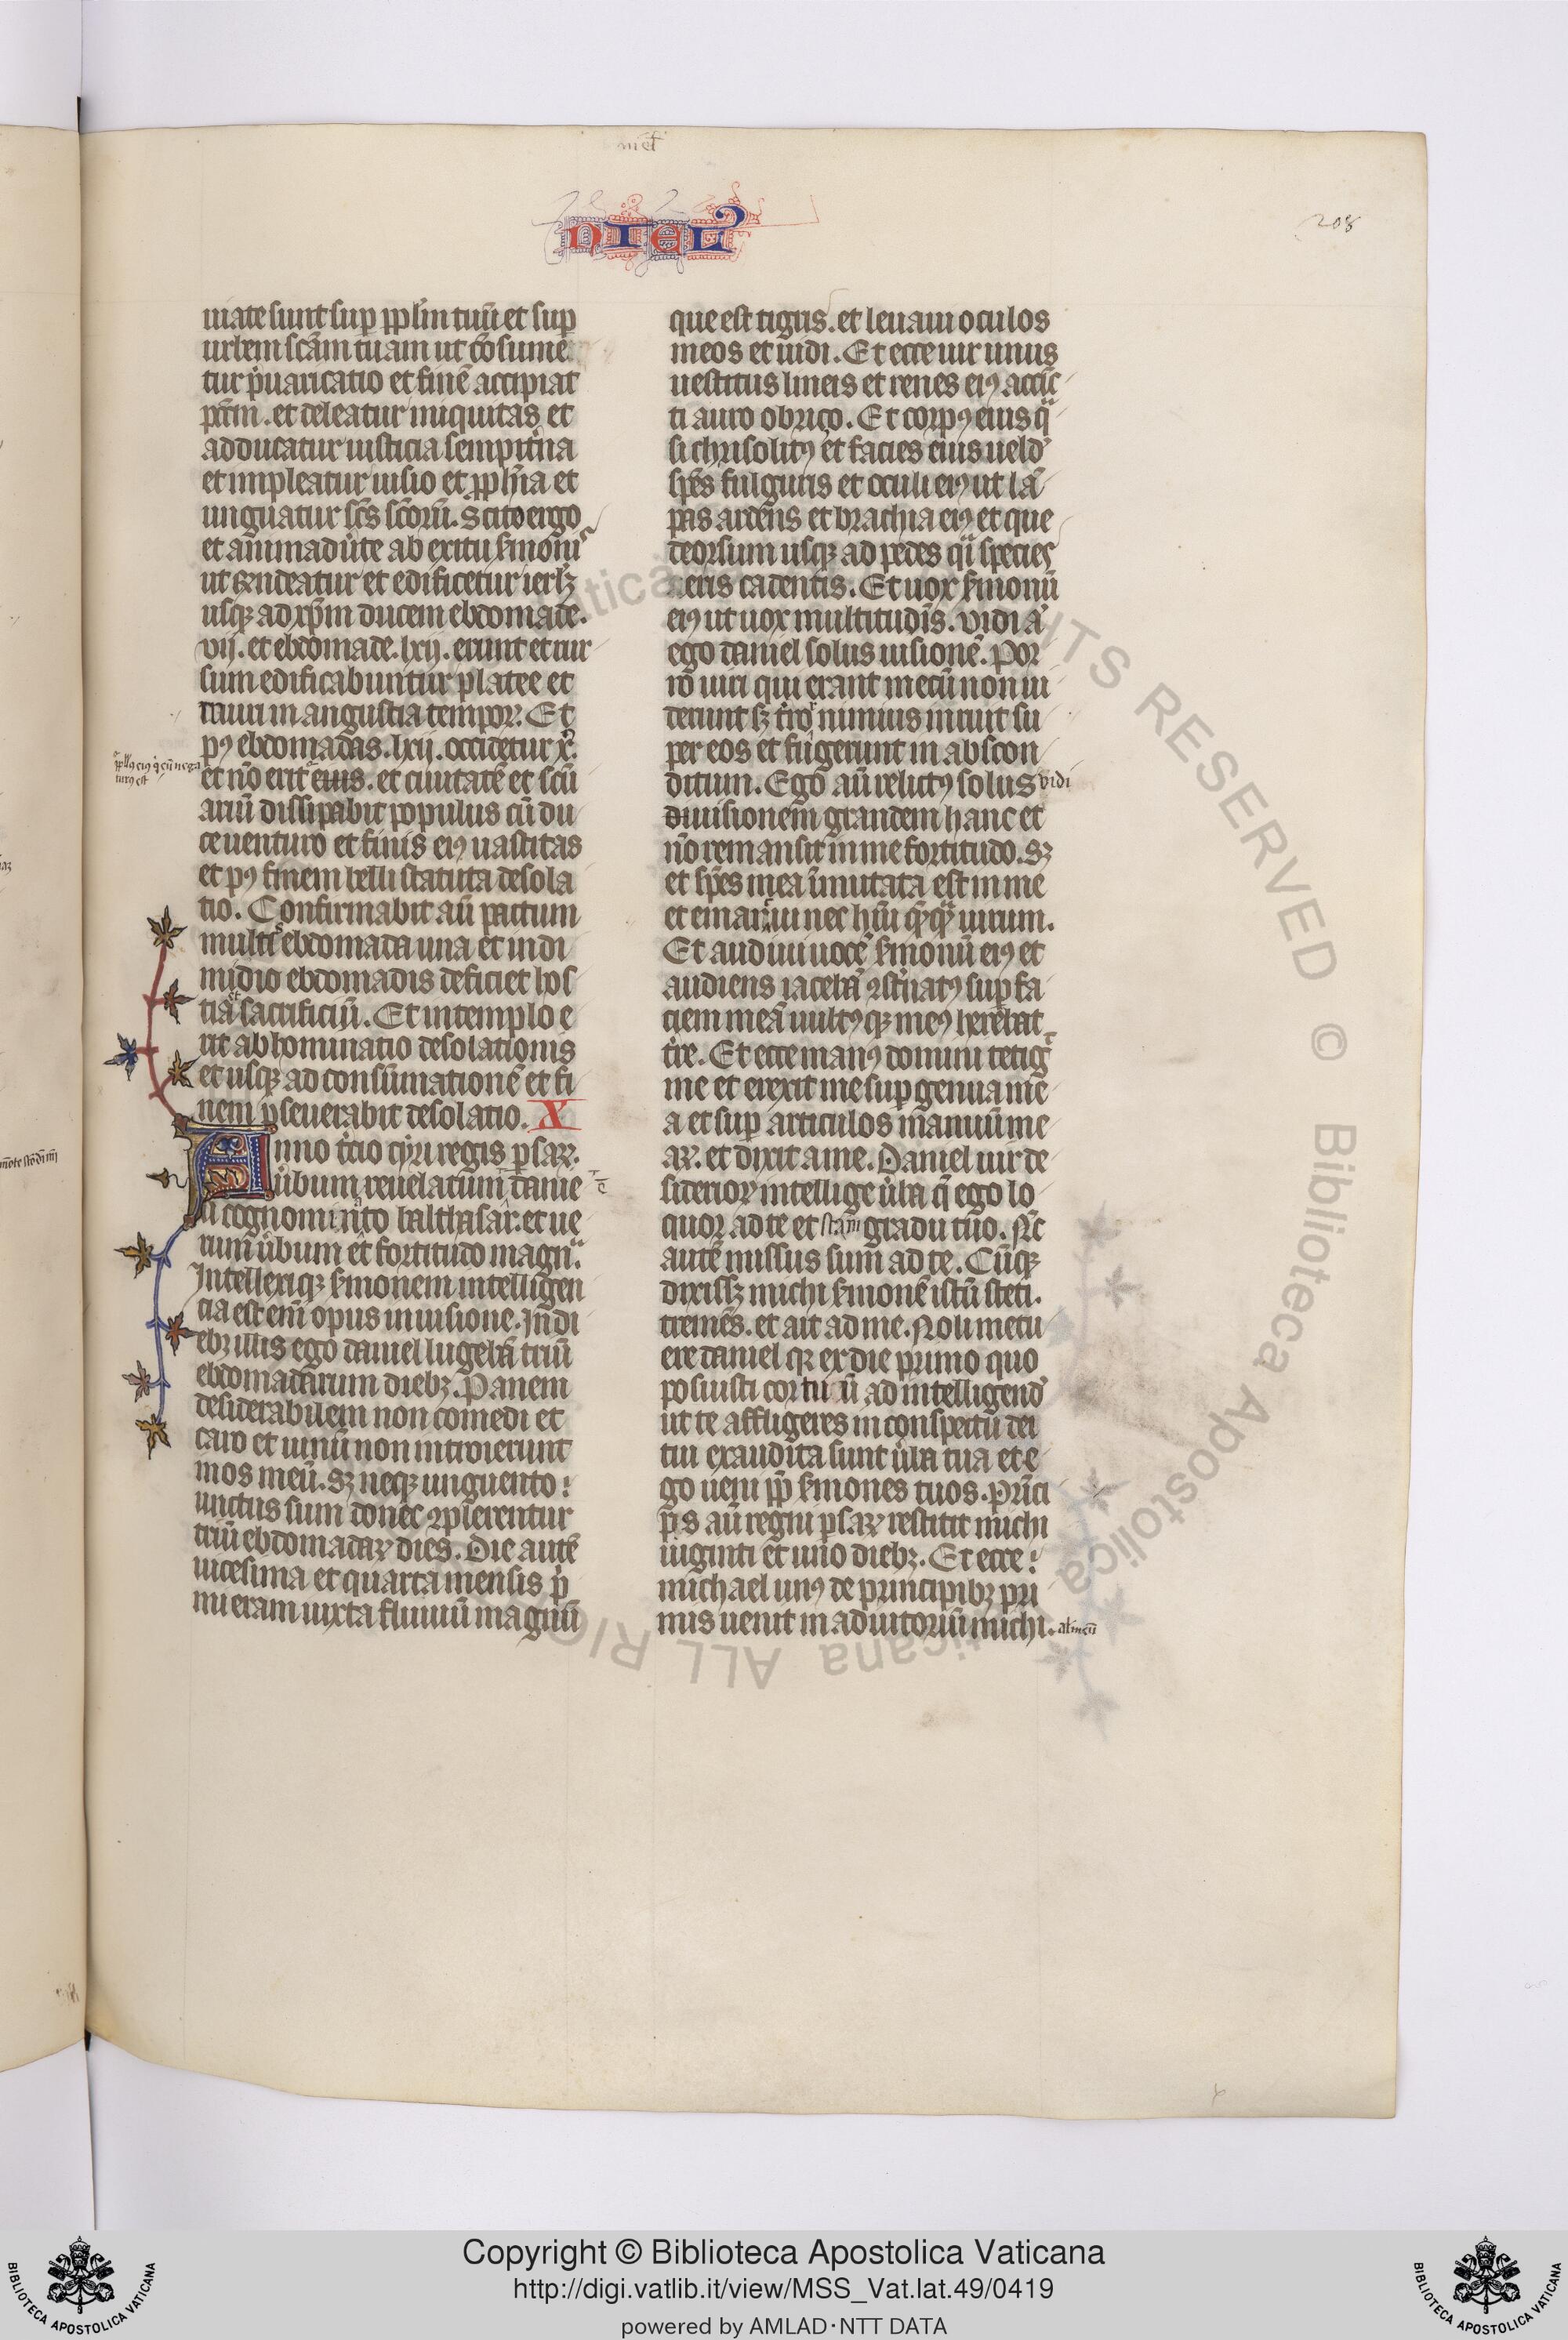 niel
NIEL
208
uiate sunt sup̱ ppl̄m tuū et sup̱
urbem sc̄am tuam ut cōsume
tur p̄uaricatio et finē accipiat
pc̄tm. et deleatur iniquitas et
adducatur iusticia sempit̄na
et impleatur uisio et pph̄ia et
unguatur sc̄s sc̄orū. Scito ergo
et animaduͥte ab exitu s̄moniˢ
ut edificetur ierl̄ꝫ
usqꝫ ad xp̄m ducem ebdomade.
vij. et ebdomade. lxij. erunt et rur
sum edificabuntur platee et
muri in angustia tempoꝝ. Et
pꝰ ebdomadas. lxij. occidetur xp̄c.
et nō erit eius. et ciuitatē et scū
ariū dissipabit populus cū du
ce uenturo et finis eiꝰ uastitas
et pꝰ finem belli statuta desola
tio. Confirmabit aū pactum
multiˢ ebdomada una et in di
midio ebdomadis deficiet hos
tia et sacrificiū. Et in templo e
rit abhominatio desolationis
et usqꝫ ad consūmationē et fi
nem p̱seuerabit desolatio. X
Anno t̄cio cyri regis p̱saꝝ.
uͥbum reuelatum ē danie
li cognomēto balthasar. et ue
rum uͥbum et fortitudo magnᵃ.
Intellexiqꝫ s̄monem intelligen
cia est enī opus in uisione. In di
ebꝫ illis ego daniel lugebā triū
ebdomadarum diebꝫ. Panem
desiderabilem non comedi et
caro et uinū non introierunt
in os meū. sꝫ neqꝫ unguento
unctus sum donec ꝯplerentur
triū ebdomadaꝝ dies. Die autē
uicesima et quarta mensis p̄
mi eram iuxta fluuiū magnū
que est tigris. et leuaui oculos
meos et uidi. Et ecce uir unus
uestitus lineis et renes eiꝰ accīc
ti auro obrizo. Et corpꝰ eius qᵃ
si chrisolitꝰ et facies eius uelđ
sp̄es fulguris et oculi eiꝰ ut lā
pas ardens et brachia eiꝰ et que
deorsum usqꝫ ad pedes qᵃsi species
eris cadentis. Et uox s̄monū
eiꝰ ut uox multitudīs. vidi ā
ego daniel solus uisionē. Por
ro uiri qui erant mecū non ui
derunt sꝫ t̄roꝛ nimius irruit su
per eos et fugerunt in abscon
ditum. Ego aū relictꝰ solus vidi
diuisionem grandem hanc et
nō remansit in me fortitudo. sꝫ
et sp̄es mea īmutata est in me
et emarcui nec hūi qͥcqᵃ uirium.
Et audiui uocē s̄monū eiꝰ et
audiens iacebā ꝯst̄natꝰ sup̱ fa
ciem meā uultꝰqꝫ meꝰ herebat
t̄re. Et ecce manꝰ domini tetigͭ
me et erexit me sup̱ genua me
a et sup̱ articulos manuū me
aꝝ. et dixit a me. Daniel uir de
sideriorꝝ intellige uͥba q̄ ego lo
quor ad te et sta in gradu tuo. Nc̄
autē missus sum ad te. Cūqꝫ
dixissꝫ michi s̄monē istū steti.
tremēs. et ait ad me. Noli metu
ere daniel qꝛ ex die primo quo
posuisti cor tuū ad intelligenđ
ut te affligeres in conspectu dei
tui exaudita sunt uͥba tua et e
go ueni pp̄ s̄mones tuos. Prīci
p̱s aū regni p̱saꝝ restitit michi
uiginti et uno diebꝫ. Et ecce
michael unꝰ de principibꝫ pri
mis uenit in adiutoriū michi. al' meū
BIBLIOTECA APOSTOLICA VATICANA
Copyright © Biblioteca Apostolica Vaticana
http://digi.vatlib.it/view/MSS_Vat.lat.49/0419
powered by AMLAD·NTT DATA
BIBLIOTECA APOSTOLICA VATICANA